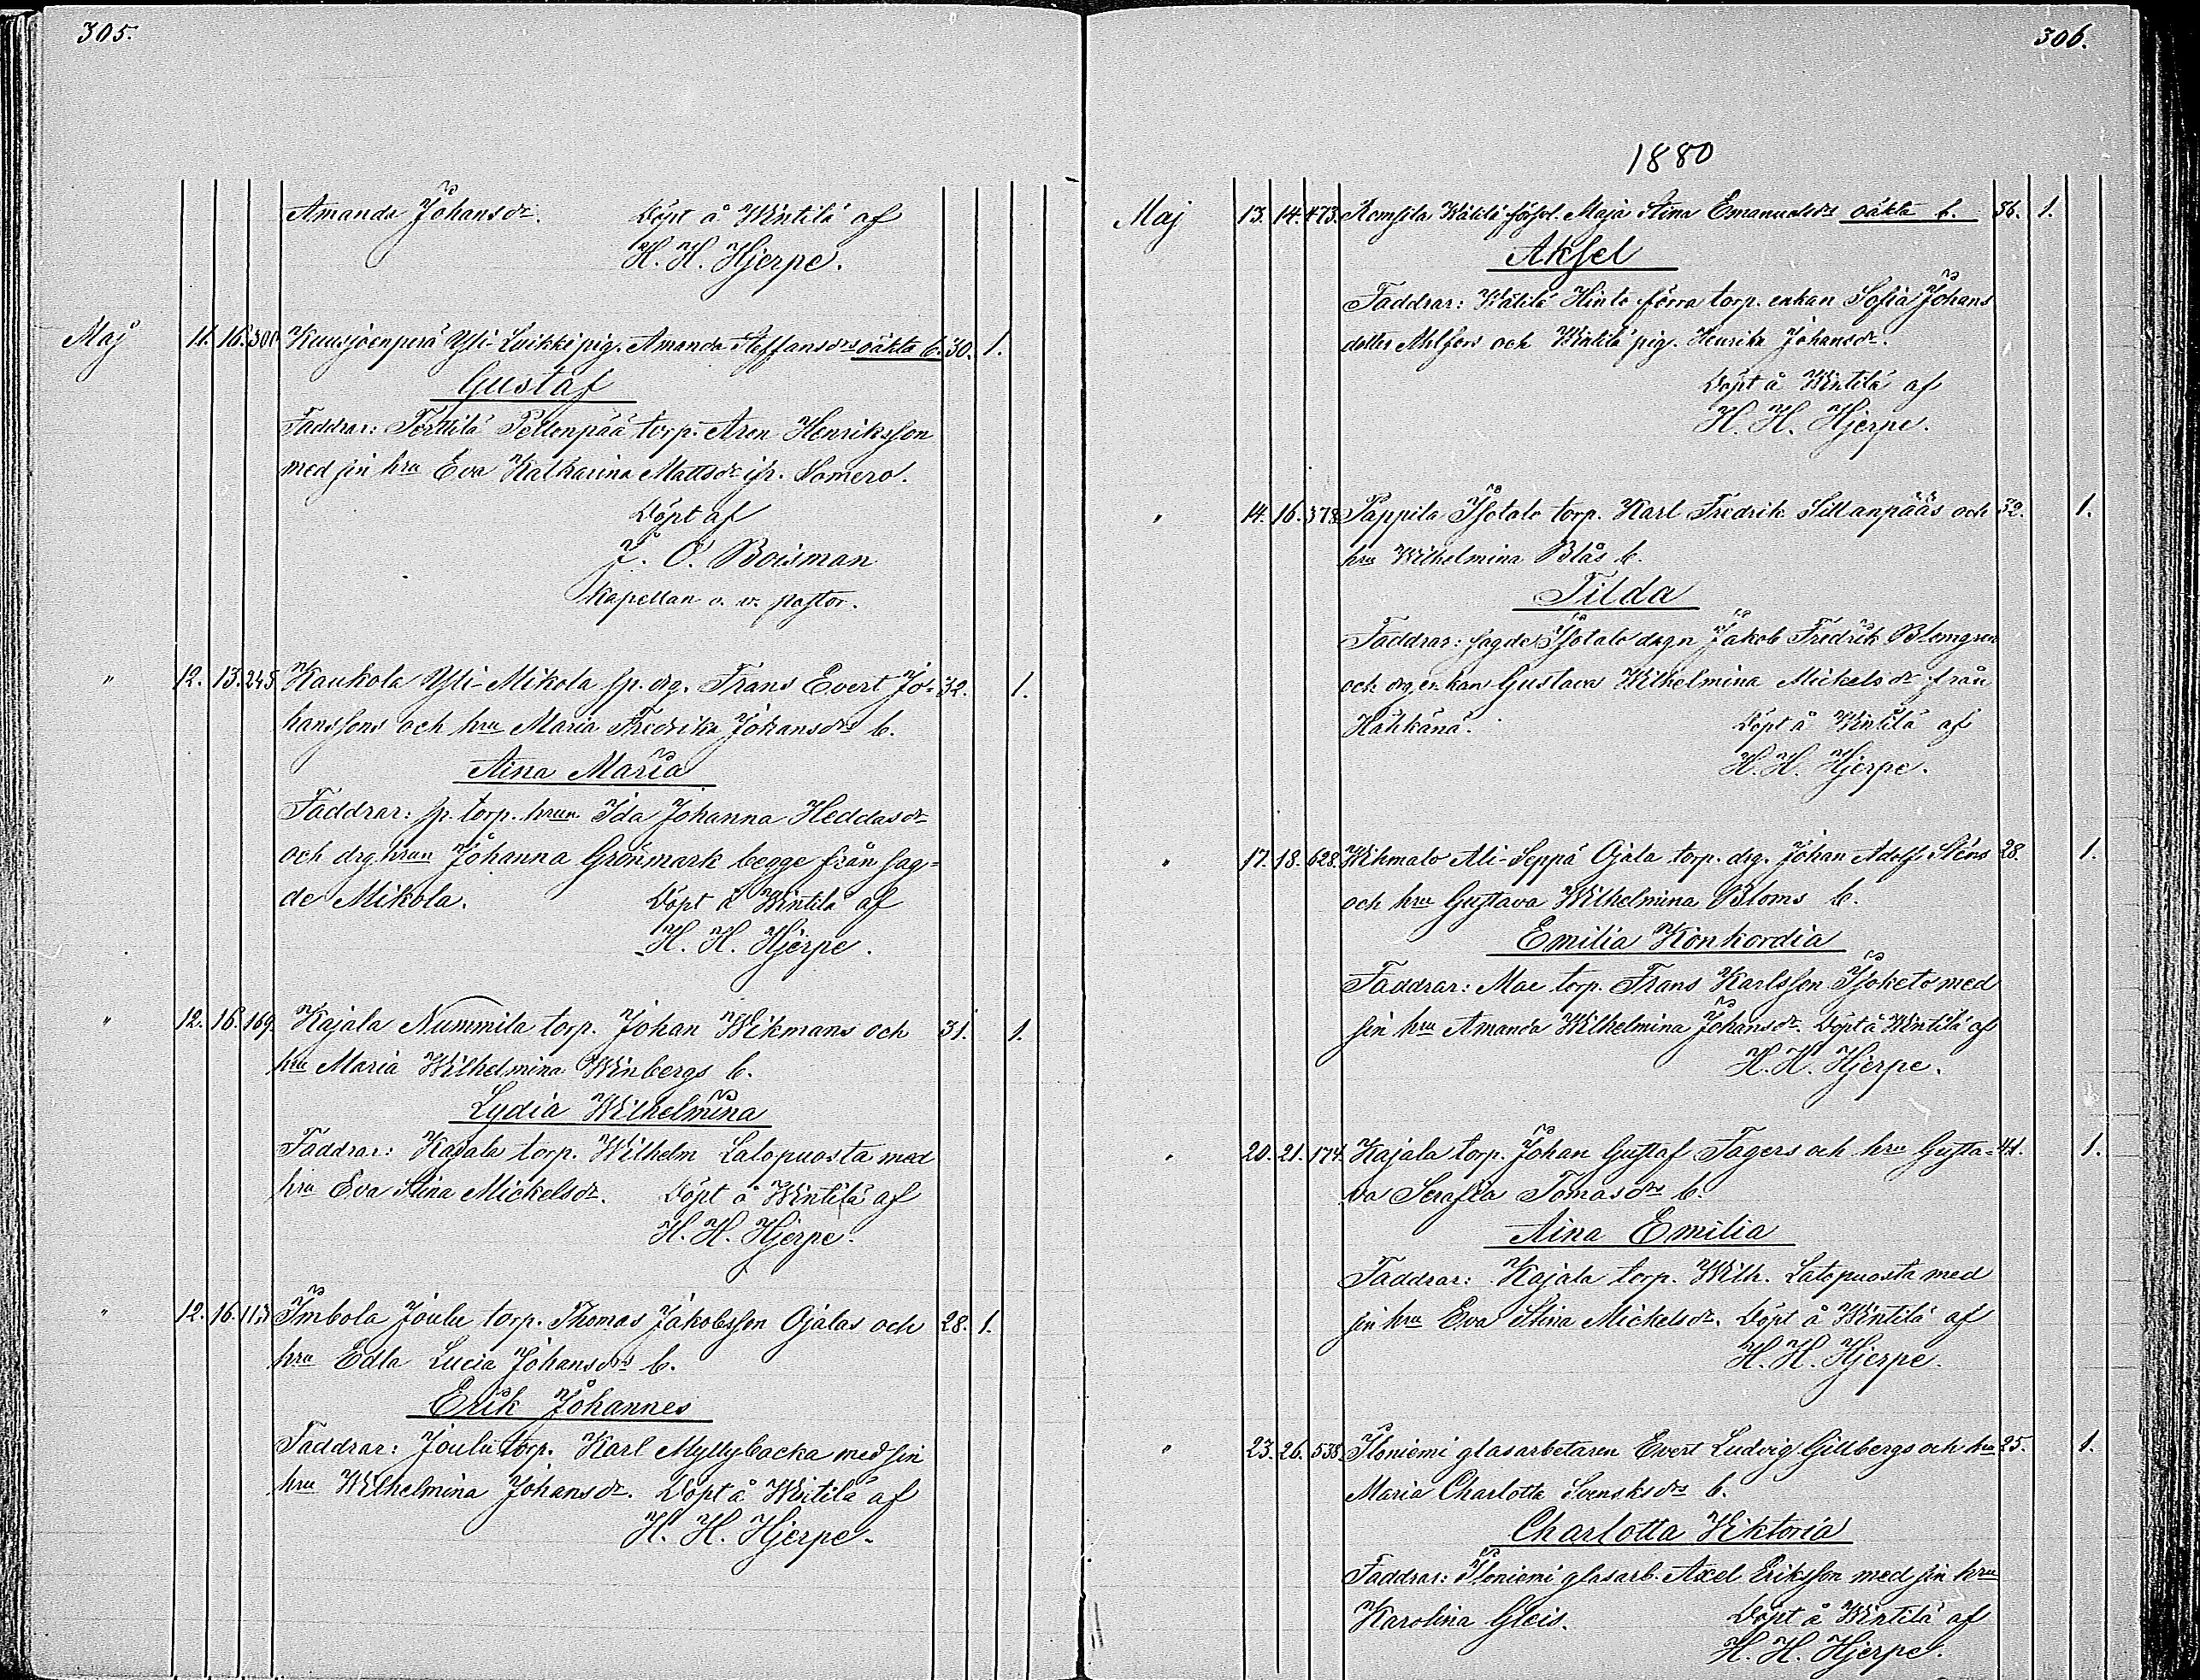 305.
Amanda Johansdr. Döpt å Wintilä af
H. H. Hjerpe.
Maj 11. 16. 300. Kuusjoenperä Yli-Luikki pig. Amanda Staffansdrs oäkta b. 30. 1.
Gustaf
Faddrar: Terttilä Pellonpää torp. Aron Henriksson
med sin hru Eva Katharina Mattsdr ifr. Somero.
Döpt af
F. O. Boisman
Kapellan o. v. pastor.
" 12. 13. 245. Kaukola Yli-Mikola sp. drg. Frans Evert Jo- 32. 1.
hanssons och hru Maria Fredrika Johansdrs b.
Aina Maria
Faddrar: sp. torp. hrun Ida Johanna Heddasdr
och drg. hrun Johanna Grönmark begge från sag-
de Mikola. Döpt å Wintilä af
H. H. Hjerpe.
" 12. 16. 169. Kajala Nummila torp. Johan Wikmans och 31. 1.
hru Maria Wilhelmina Winbergs b.
Lydia Wilhelmina
Faddrar: Kajala torp. Wilhelm Latopuosta med
hru Eva Stina Mickelsdr. Döpt å Wintilä af
H. H. Hjerpe.
" 12. 16. 113. Imbola Joulu torp. Thomas Jakobsson Ojalas och 28. 1.
hru Edla Lucia Johansdrs b.
Erik Johannes
Faddrar: Joulu torp. Karl Myllybacka med sin
hru Wilhelmina Johansdr. Döpt å Wintilä af
H. H. Hjerpe.
306.
1880
Maj 13. 14. 473. Romsila Wätilä Maja Stina Emanuelsdrs oäkta b. 36. 1.
Aksel
Faddrar: Wätilä Hinto förra torp. enkan Sofia Johans
dotter och Wintilä pig. Henrika Johansdr.
Döpt å Wintilä af
H. H. Hjerpe.
" 14. 16. 378. Pappila Isotalo torp. Karl Fredrik Sillanpääs och 32. 1.
hru Wilhelmina Blås b.
Tilda
Faddrar: sagde Isotalo drgn Jakob Fredrik Blomgren
och drg. enkan Gustava Wilhelmina Mickelsdr från
Hähkänä. Döpt å Wintilä af
H. H. Hjerpe.
" 17. 18. 628. Wihmalo Ali-Seppä Ojala torp. drg. Johan Adolf Sténs 28. 1.
och hru Gustava Wilhelmina Bloms b.
Emilia Konkordia
Faddrar: Mae torp. Frans Karlsson Isoketo med
sin hru Amanda Wilhelmina Johansdr. Döpt å Wintilä af
H. H. Hjerpe.
" 20. 21. 174. Kajala torp. Johan Gustaf Fagers och hru Gusta- 41. 1.
va Serafia Tomasdrs b.
Aina Emilia
Faddrar: Kajala torp. Wilh. Latopuosta med
sin hru Eva Stina Mickelsdr. Döpt å Wintilä af
H. H. Hjerpe.
" 23. 26. 538. Iloniemi glasarbetaren Evert Ludvig Gillbergs och hru 25. 1.
Maria Charlotta Svensksdrs b.
Charlotta Viktoria
Faddrar: Iloniemi glasarb. Axel Eriksson med sin hru
Karolina Gleis. Döpt å Wintilä af
H. H. Hjerpe.